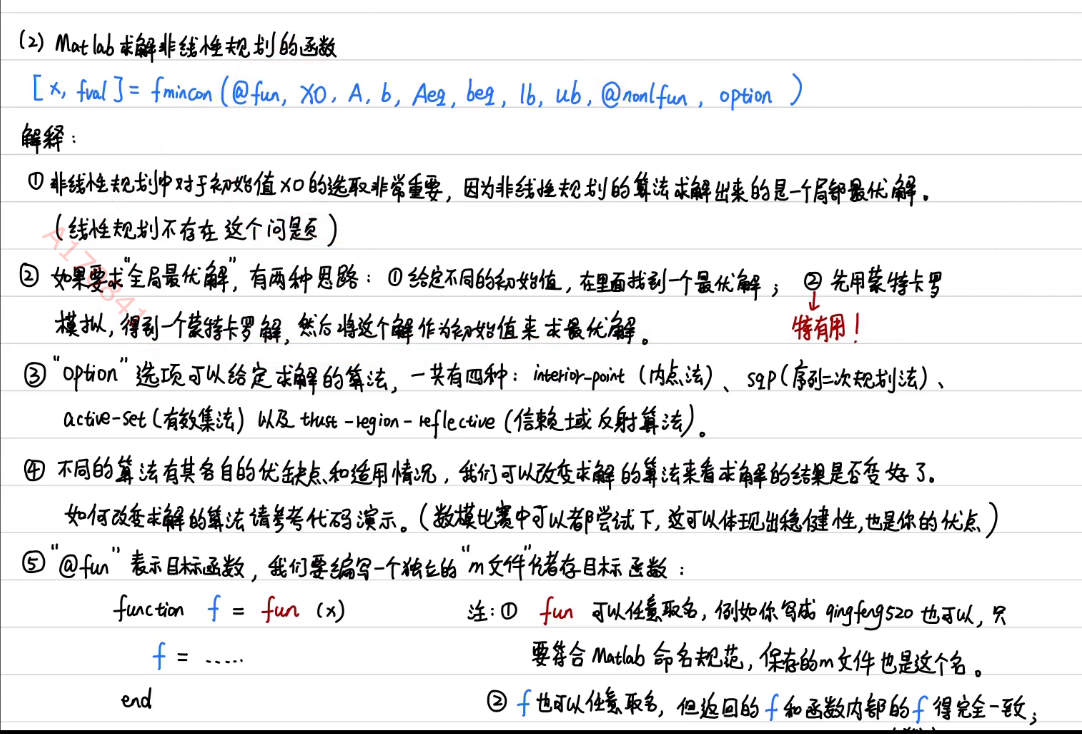 (2) Matlab求解非线性规划的函数
[x, fval] = fmincon(@fun, X0, A, b, Aeq, beq, lb, ub, @nonlfun, option )
解释：
① 非线性规划中对于初始值X0的选取非常重要，因为非线性规划的算法求解出来的是一个局部最优解。
（线性规划不存在这个问题）
② 如果要求“全局最优解”，有两种思路：①给定不同的初始值，在里面找到一个最优解； ② 先用蒙特卡罗
模拟，得到一个蒙特卡罗解，然后将这个解作为初始值来求最优解。
特有用！
③ “option”选项可以给定求解的算法，一共有四种：interior-point（内点法）、sqp（序列二次规划法）、
active-set（有效集法）以及 trust-region-reflective（信赖域反射算法）。
④ 不同的算法有其各自的优缺点和适用情况，我们可以改变求解的算法来看求解的结果是否变好了。
如何改变求解的算法请参考代码演示。（数模比赛中可以都尝试下，这可以体现出稳健性，也是你的优点）
⑤ “@fun”表示目标函数，我们要编写一个独立的“m文件”储存目标函数：
function f = fun (x)
f = ......
end
注：① fun 可以任意取名，例如你写成 qingfeng520 也可以，只
要符合Matlab命名规范，保存的m文件也是这个名。
② f也可以任意取名，但返回的f和函数内部的f得完全一致；